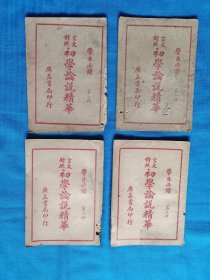 學生必讀
言文對照 初學論說精華
第一冊
廣益書局印行
學生必讀
言文對照 初學論說精華
廣益書局印行
學生必讀
言文對照 初學論說精華
廣益書局印行
學生必讀
言文對照 初學論說精華
廣益書局印行